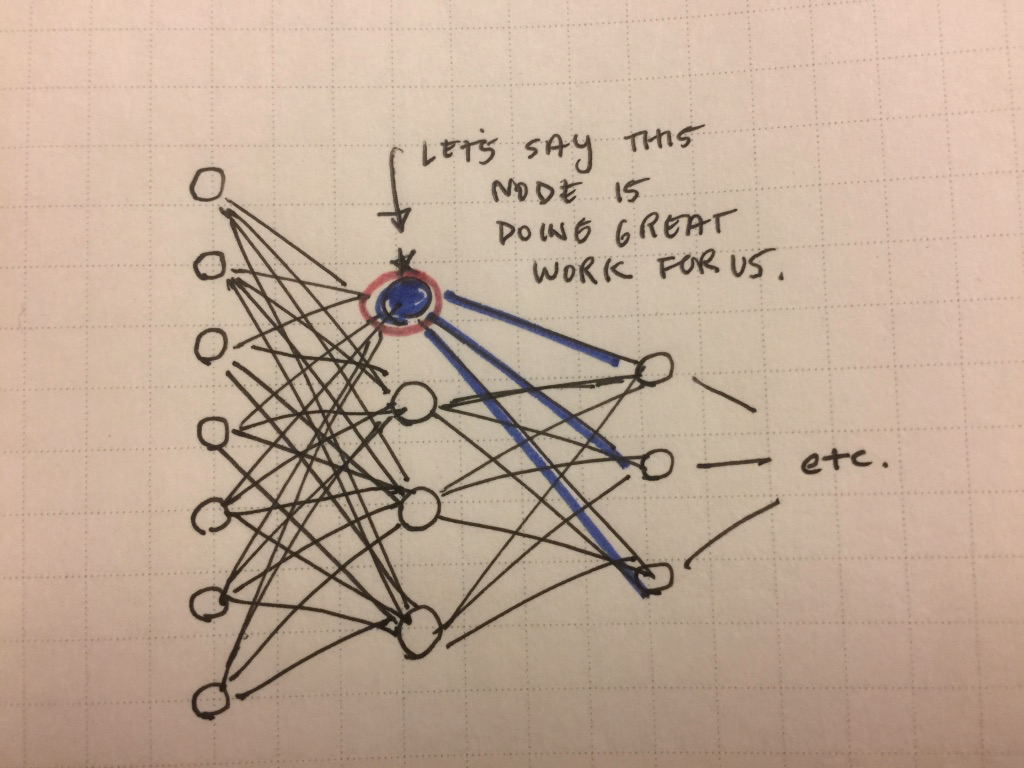 LET'S SAY THIS
NODE IS
DOING GREAT
WORK FOR US.
etc.